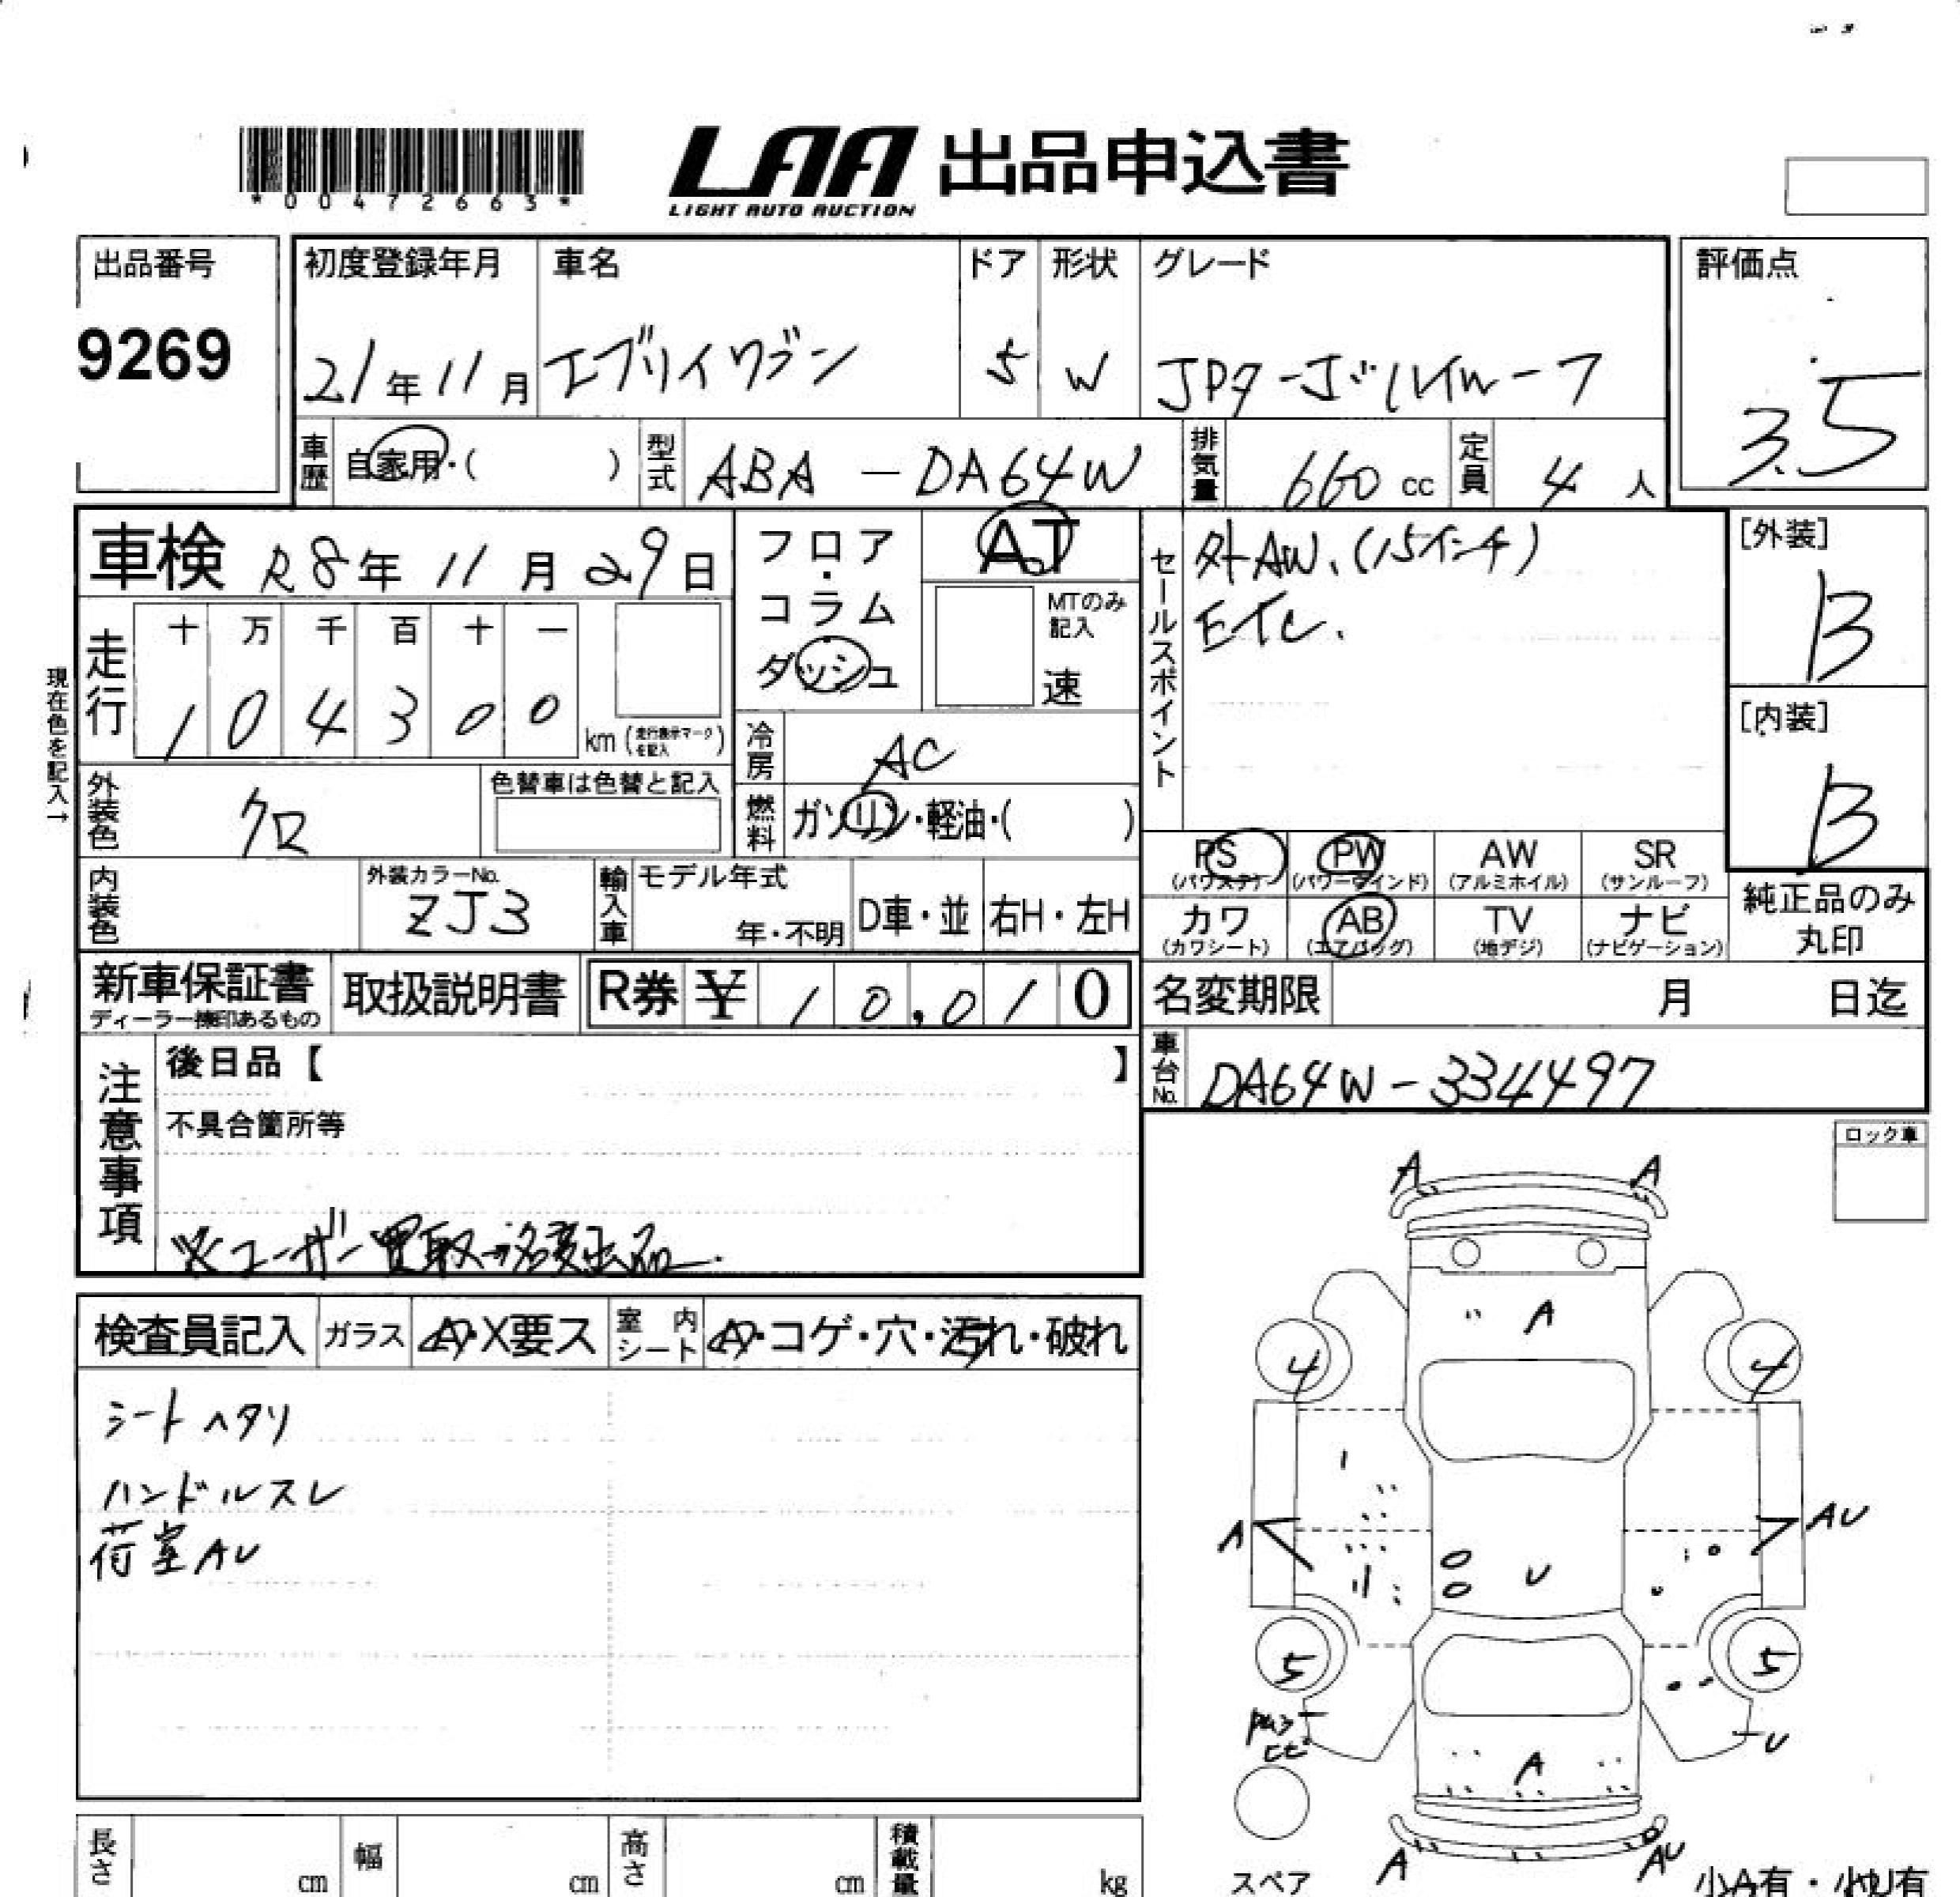 *00472663*
LAA 出品申込書
LIGHT AUTO AUCTION
出品番号
9269
初度登録年月
21年11月
車名
エブリイワゴン
ドア
5
形状
W
グレード
JPターボハイルーフ
評価点
3.5
車歴 自家用・( )
型式 ABA-DA64W
排気量 660 cc
定員 4 人
車検 R8年11月29日
フロア・コラム
ダッシュ
AT
MTのみ記入
速
セールスポイント
外AW.(15インチ)
ETC.
[外装]
B
[内装]
B
現在色を記入→
走行
十 万 千 百 十 一
1 0 4 3 0 0
km (走行表示マークを記入)
冷房 AC
外装色 クロ
色替車は色替と記入
燃料 ガソリン・軽油・( )
内装色
外装カラーNo.
ZJ3
輸入車
モデル年式
年・不明
D車・並
右H・左H
PS (パワステ)
PW (パワーウインド)
AW (アルミホイル)
SR (サンルーフ)
カワ (カワシート)
AB (エアバッグ)
TV (地デジ)
ナビ (ナビゲーション)
純正品のみ
丸印
新車保証書
ディーラー捺印あるもの
取扱説明書
R券 ¥ 10,010
名変期限 月 日迄
車台No. DA64W-334497
注意事項
後日品【 】
不具合箇所等
※ユーザー買取→名変出品.
ロック車
検査員記入
ガラス A・X要ス
室内シート A・コゲ・穴・汚れ・破れ
シートヘタリ
ハンドルスレ
荷室AU
A A
A
4 4
A AU
U
5 5
U
A
A AU
スペア
小A有・小U有
長さ cm
幅 cm
高さ cm
積載量 kg